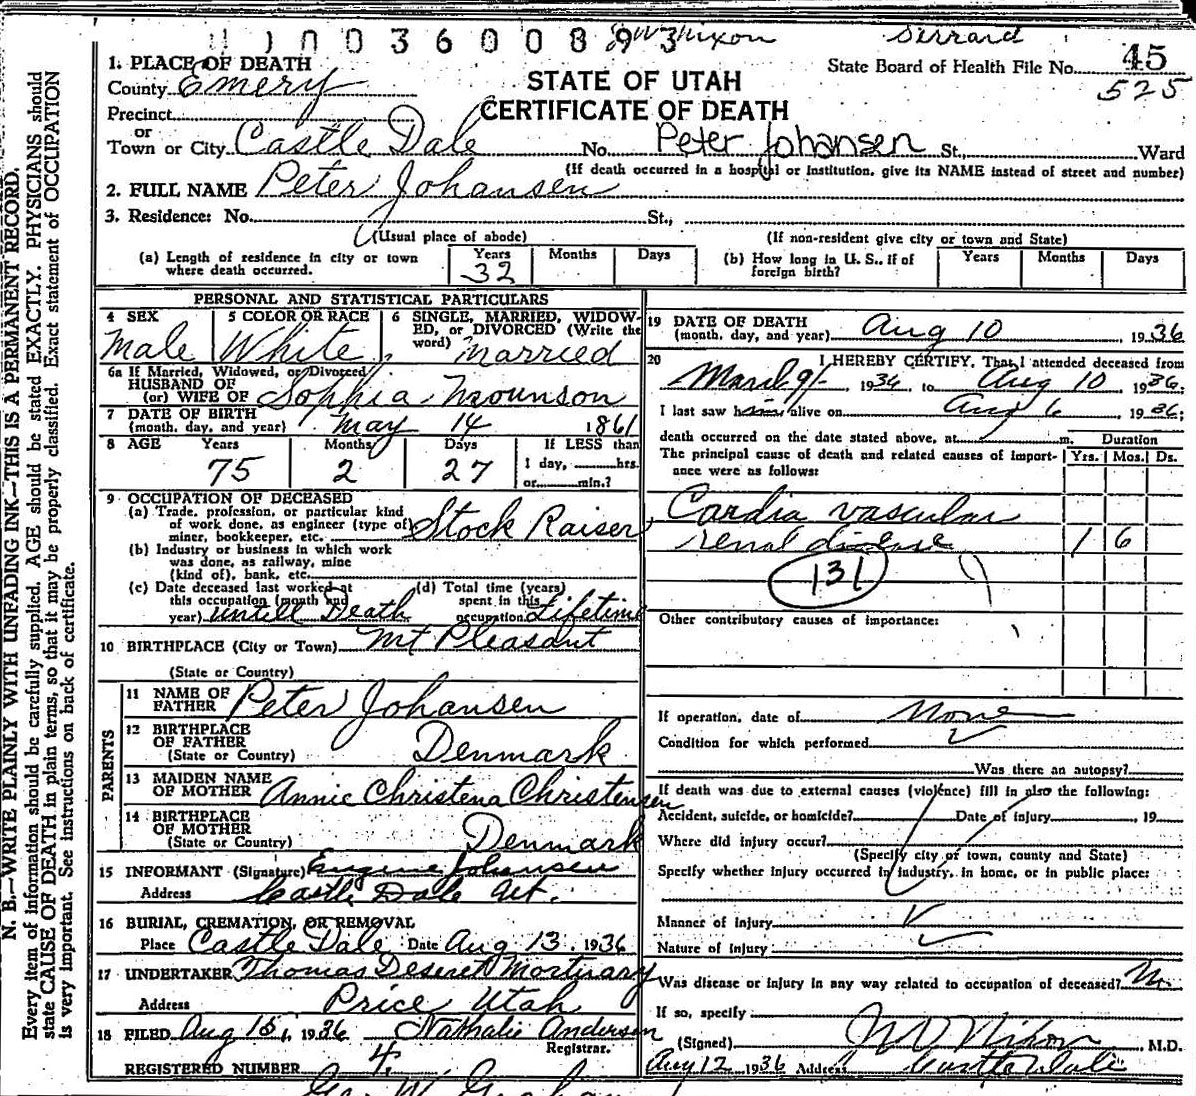 0036008931 Nixon Serrard
45
525
State Board of Health File No.
STATE OF UTAH
CERTIFICATE OF DEATH
1. PLACE OF DEATH
County Emery
Precinct
or
Town or City Castle Dale No. Peter Johansen St., Ward
(If death occurred in a hospital or institution, give its NAME instead of street and number)
2. FULL NAME Peter Johansen
3. Residence: No. St.,
(Usual place of abode) (If non-resident give city or town and State)
(a) Length of residence in city or town where death occurred. Years 32 Months Days
(b) How long in U. S., if of foreign birth? Years Months Days
PERSONAL AND STATISTICAL PARTICULARS
4 SEX Male
5 COLOR OR RACE White
6 SINGLE, MARRIED, WIDOWED, or DIVORCED (Write the word) Married
6a If Married, Widowed, or Divorced
HUSBAND OF
(or) WIFE OF Sophia Mounson
7 DATE OF BIRTH
(month, day, and year) May 14 1861
8 AGE Years 75 Months 2 Days 27 If LESS than
1 day, hrs.
or min.?
9 OCCUPATION OF DECEASED
(a) Trade, profession, or particular kind
of work done, as engineer (type of)
miner, bookkeeper, etc. Stock Raiser
(b) Industry or business in which work
was done, as railway, mine
(kind of), bank, etc.
(c) Date deceased last worked at
this occupation (month and
year) untill Death
(d) Total time (years)
spent in this
occupation Lifetime
10 BIRTHPLACE (City or Town) Mt Pleasant
(State or Country)
PARENTS
11 NAME OF
FATHER Peter Johansen
12 BIRTHPLACE
OF FATHER
(State or Country) Denmark
13 MAIDEN NAME
OF MOTHER Annie Christena Christensen
14 BIRTHPLACE
OF MOTHER
(State or Country) Denmark
15 INFORMANT (Signature) Eugene Johansen
Address Castle Dale Ut.
16 BURIAL, CREMATION, OR REMOVAL
Place Castle Dale Date Aug 13, 1936
17 UNDERTAKER Thomas Deseret Mortuary
Address Price Utah
18 FILED Aug 15, 1936 Nathalie Andersen
Registrar.
REGISTERED NUMBER 4
19 DATE OF DEATH
(month, day, and year) Aug 10 1936
20 I HEREBY CERTIFY, That I attended deceased from
1936 to Aug 10 1936;
I last saw him alive on Aug 6 1936;
death occurred on the date stated above, at m.
Duration
The principal cause of death and related causes of importance were as follows: Yrs. Mos. Ds.
Cardia vascular
renal disease 1 6
131
Other contributory causes of importance:
If operation, date of None
Condition for which performed
Was there an autopsy?
If death was due to external causes (violence) fill in also the following:
Accident, suicide, or homicide? Date of injury , 19
Where did injury occur?
(Specify city or town, county and State)
Specify whether injury occurred in industry, in home, or in public place:
Manner of injury
Nature of injury
Was disease or injury in any way related to occupation of deceased? No.
If so, specify
(Signed) Nixon, M.D.
Aug 12 1936 Address Castle Dale
N. B.—WRITE PLAINLY WITH UNFADING INK—THIS IS A PERMANENT RECORD.
Every item of information should be carefully supplied. AGE should be stated EXACTLY. PHYSICIANS should
state CAUSE OF DEATH in plain terms, so that it may be properly classified. Exact statement of OCCUPATION
is very important. See instructions on back of certificate.